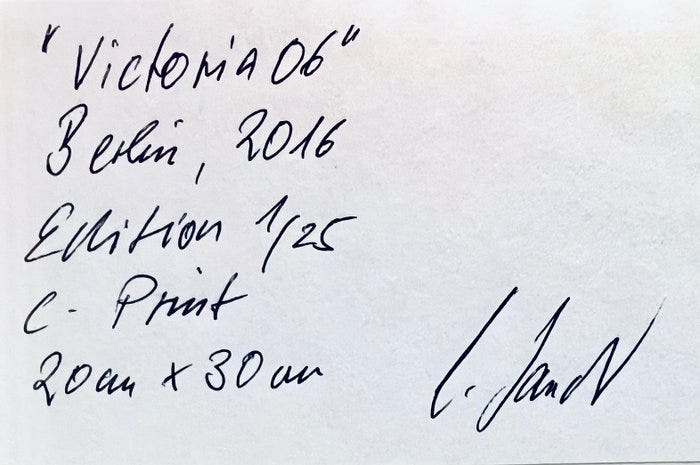 "Victoria 06"
Berlin, 2016
Edition 1/25
C-Print
20cm x 30cm